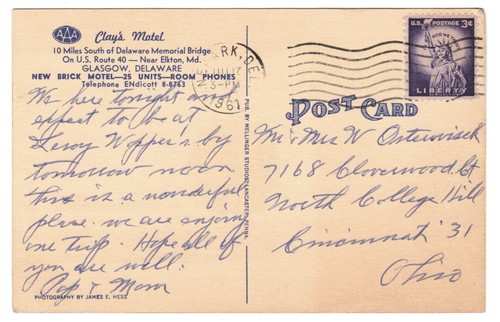 AAA
Clay's Motel
10 Miles South of Delaware Memorial Bridge
On U.S. Route 40 — Near Elkton, Md.
GLASGOW, DELAWARE
NEW BRICK MOTEL—25 UNITS—ROOM PHONES
Telephone ENdicott 8-8763
We here tonight and
expect to be at
Leroy Wopper's by
tomorrow noon
this is a wonderful
place. we are enjoying
our trip. Hope all of
you are well.
Pop & Mom
PHOTOGRAPHY BY JAMES E. HESS
PUB. BY MELLINGER STUDIOS, LANCASTER, PENNA.
ARK, DEL
3-PM
1961
U.S. POSTAGE 3¢
IN GOD WE TRUST
LIBERTY
POST CARD
Mr & Mrs W
7168 Cloverwood Ct
North College Hill
Cincinnati 31
Ohio